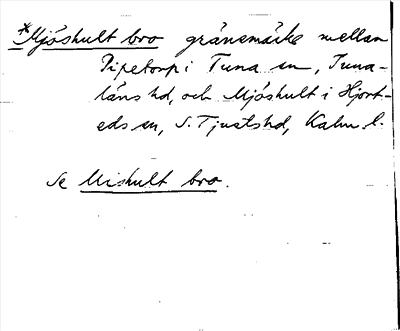 *Mjöshult bro gränsmärke mellan
Pipetorp i Tuna sn, Tuna-
läns hd, och Mjöshult i Hjort-
eds sn, S. Tjusts hd, Kalm. l.
Se Mishult bro.